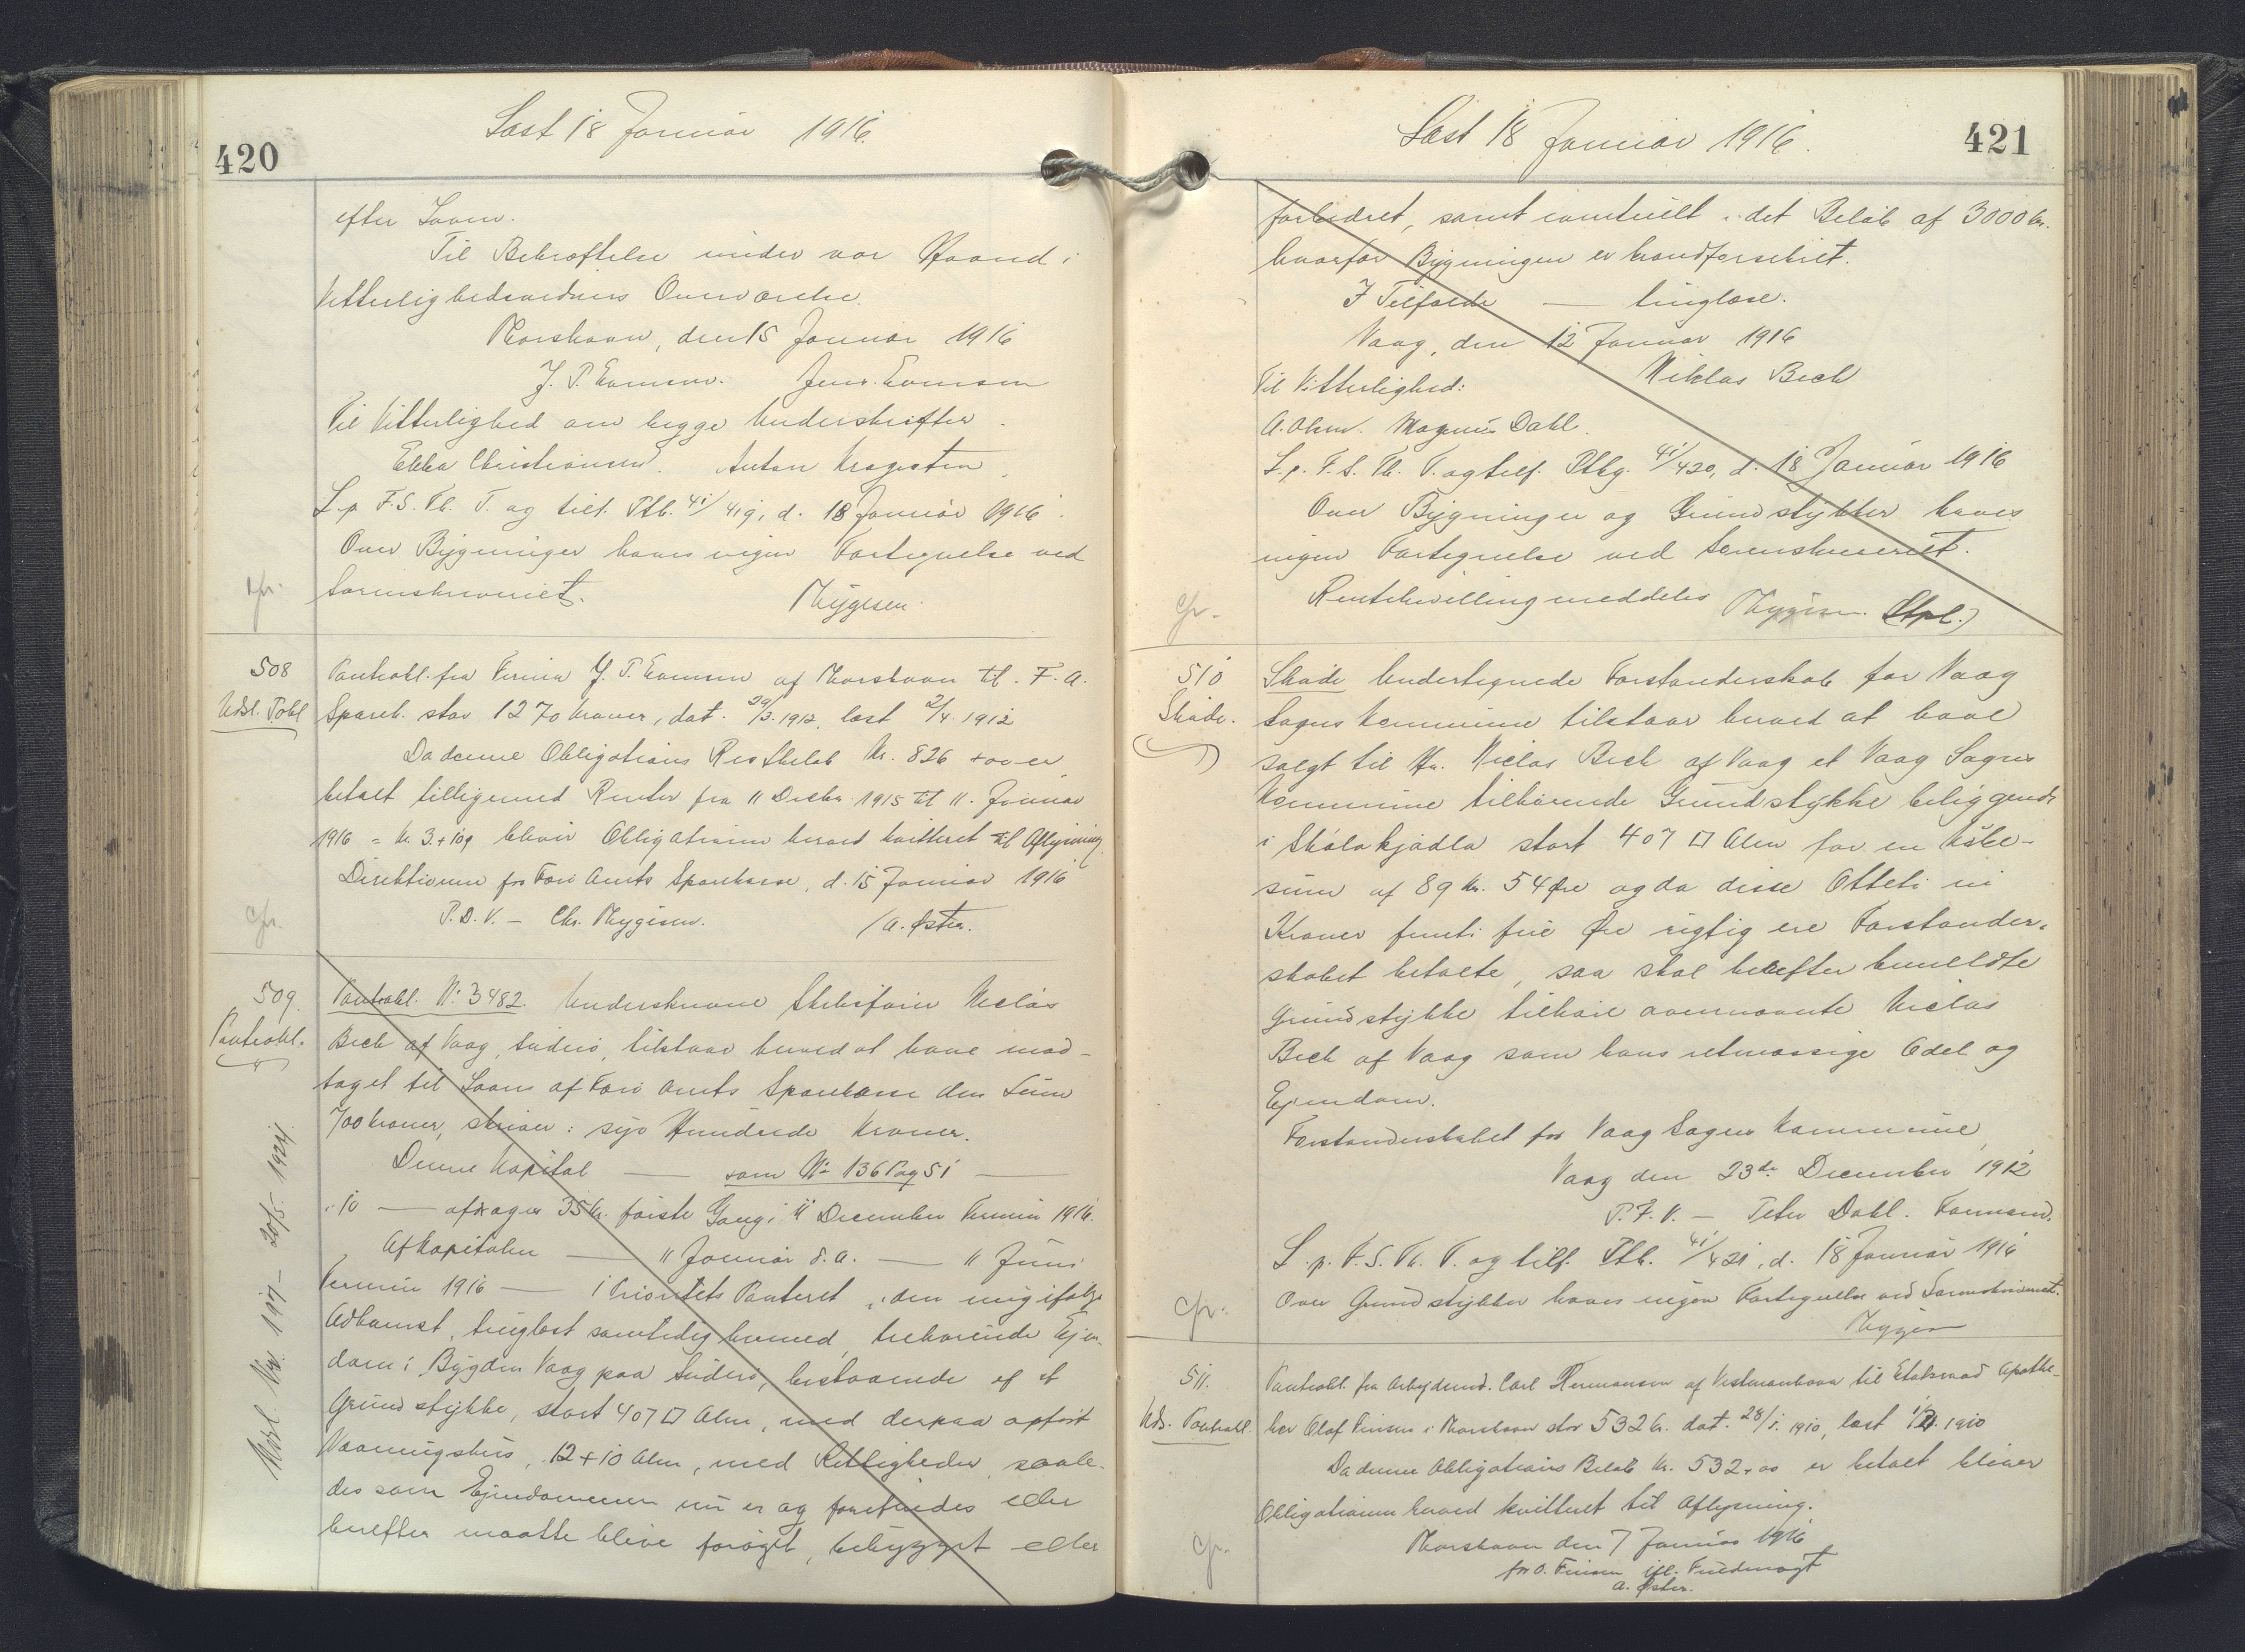 420
Læst 18 Januar 1916.
efter Loven.
Til Bekræftelse under vor Haand i
Vitterlighedsvidners Overværelse.
Thorshavn, den 15 Januar 1916
J. P. Evensen. Jens Evensen
Til Vitterlighed om begge Underskrifter.
Ebba Christiansen. Anton Kragesten
L. p. F. S. Th. T. og tilf. Ptb. 41/419, d. 18 Januar 1916.
Over Bygninger haves ingen Fortegnelse ved
Sorenskriveriet. Mygesen
cfr.
508
Udsl. Pobl
Panteobl. fra Firma J. P. Evensen af Thorshavn til F. A.
Spareb. stor 1270 Kroner, dat. 29/3. 1912, læst 2/4. 1912
Da denne Obligations Restbeløb Kr. 826 + 00 er
betalt tilligemed Renter fra 11 Decbr 1915 til 11. Januar
1916 = Kr. 3 + 109 bliver Obligationen herved kvitteret til Aflysning.
Direktionen for Færø Amts Sparekasse, d. 15 Januar 1916
P. D. V. – Chr. Mygesen. /A. Øster.
cfr.
509.
Panteobl.
Pantobl. No 3482. Underskrevne Skibsfører Niclas
Bech af Vaag, Suderø, tilstaar herved at have mod-
taget til Laans af Færø Amts Sparekasse den Sum
700 Kroner, skriver: syv Hundrede Kroner.
Denne Kapital — som No 136 Pag 51 —
i 10 — afdrages 35 Kr. første Gang i 11 December Termin 1916.
Af Kapitalen — 11 Januar d. A. — 11 Juni
Termin 1916 — 1 Prioritets Panteret i den mig ifølge
Adkomst, tinglæst samtidig hermed, tilhørende Ejen-
dom i Bygden Vaag paa Suderø, bestaaende af et
Grundstykke, stort 407 □ Alen, med derpaa opført
Vaaningshus, 12 + 10 Alen, med Rettigheder, saale-
des som Ejendommen nu er og forefindes eller
herefter maatte blive forøget, bebygget eller
Udsl. No 197 – 20/5. 1924.
421
Læst 18 Januar 1916.
forbedret, samt eventuelt i det Beløb af 3000 Kr.
hvorfor Bygningen er brandforsikret.
I Tilfælde — tinglæse.
Vaag, den 12 Januar 1916
Niklas Bech
Til Vitterlighed:
A. Olsen. Magnus Dahl.
L. p. F. S. Th. T. og tilf. Ptbg. 41/420, d. 18 Januar 1916
Over Bygninger og Grundstykker haves
ingen Fortegnelse ved Sorenskriveriet.
Rentebevilling meddeles Mygesen. (Stpl.)
cfr.
510
Skøde.
Skøde Undertegnede Forstanderskab for Vaag
Sogns Kommune tilstaar herved at have
solgt til Hr. Niclas Bech af Vaag et Vaag Sogns
Kommune tilhørende Grundstykke beliggende
i Skálakjadla stort 407 □ Alen for en Købe-
sum af 89 Kr. 54 Øre og da disse Otteti ni
Kroner femti fire Øre rigtig ere Forstander-
skabet betalte, saa skal herefter bemeldte
Grundstykke tilhøre ovennævnte Niclas
Bech af Vaag som hans retmæssige Odel og
Ejendom.
Forstanderskabet for Vaag Sogns Kommune,
Vaag den 23de December 1912
P. F. V. – Peter Dahl. Formand.
L. p. F. S. Th. T. og tilf. Ptb. 41/421, d. 18 Januar 1916
Over Grundstykker haves ingen Fortegnelse ved Sorenskriveriet.
Mygesen
cfr.
511.
Uds. Pantobl.
Pantobl. fra Arbejdsmd. Carl Hermansen af Vestmanhavn til Etatsraad Apothe-
ker Olaf Finsen i Thorshavn stor 532 Kr. dat. 28/1. 1910, læst 1/2. 1910
Da denne Obligations Beløb Kr. 532 + 00 er betalt bliver
Obligationen herved kvitteret til Aflysning.
Thorshavn den 7 Januar 1916
for O. Finsen ifl. Fuldmagt
A. Øster.
cfr.